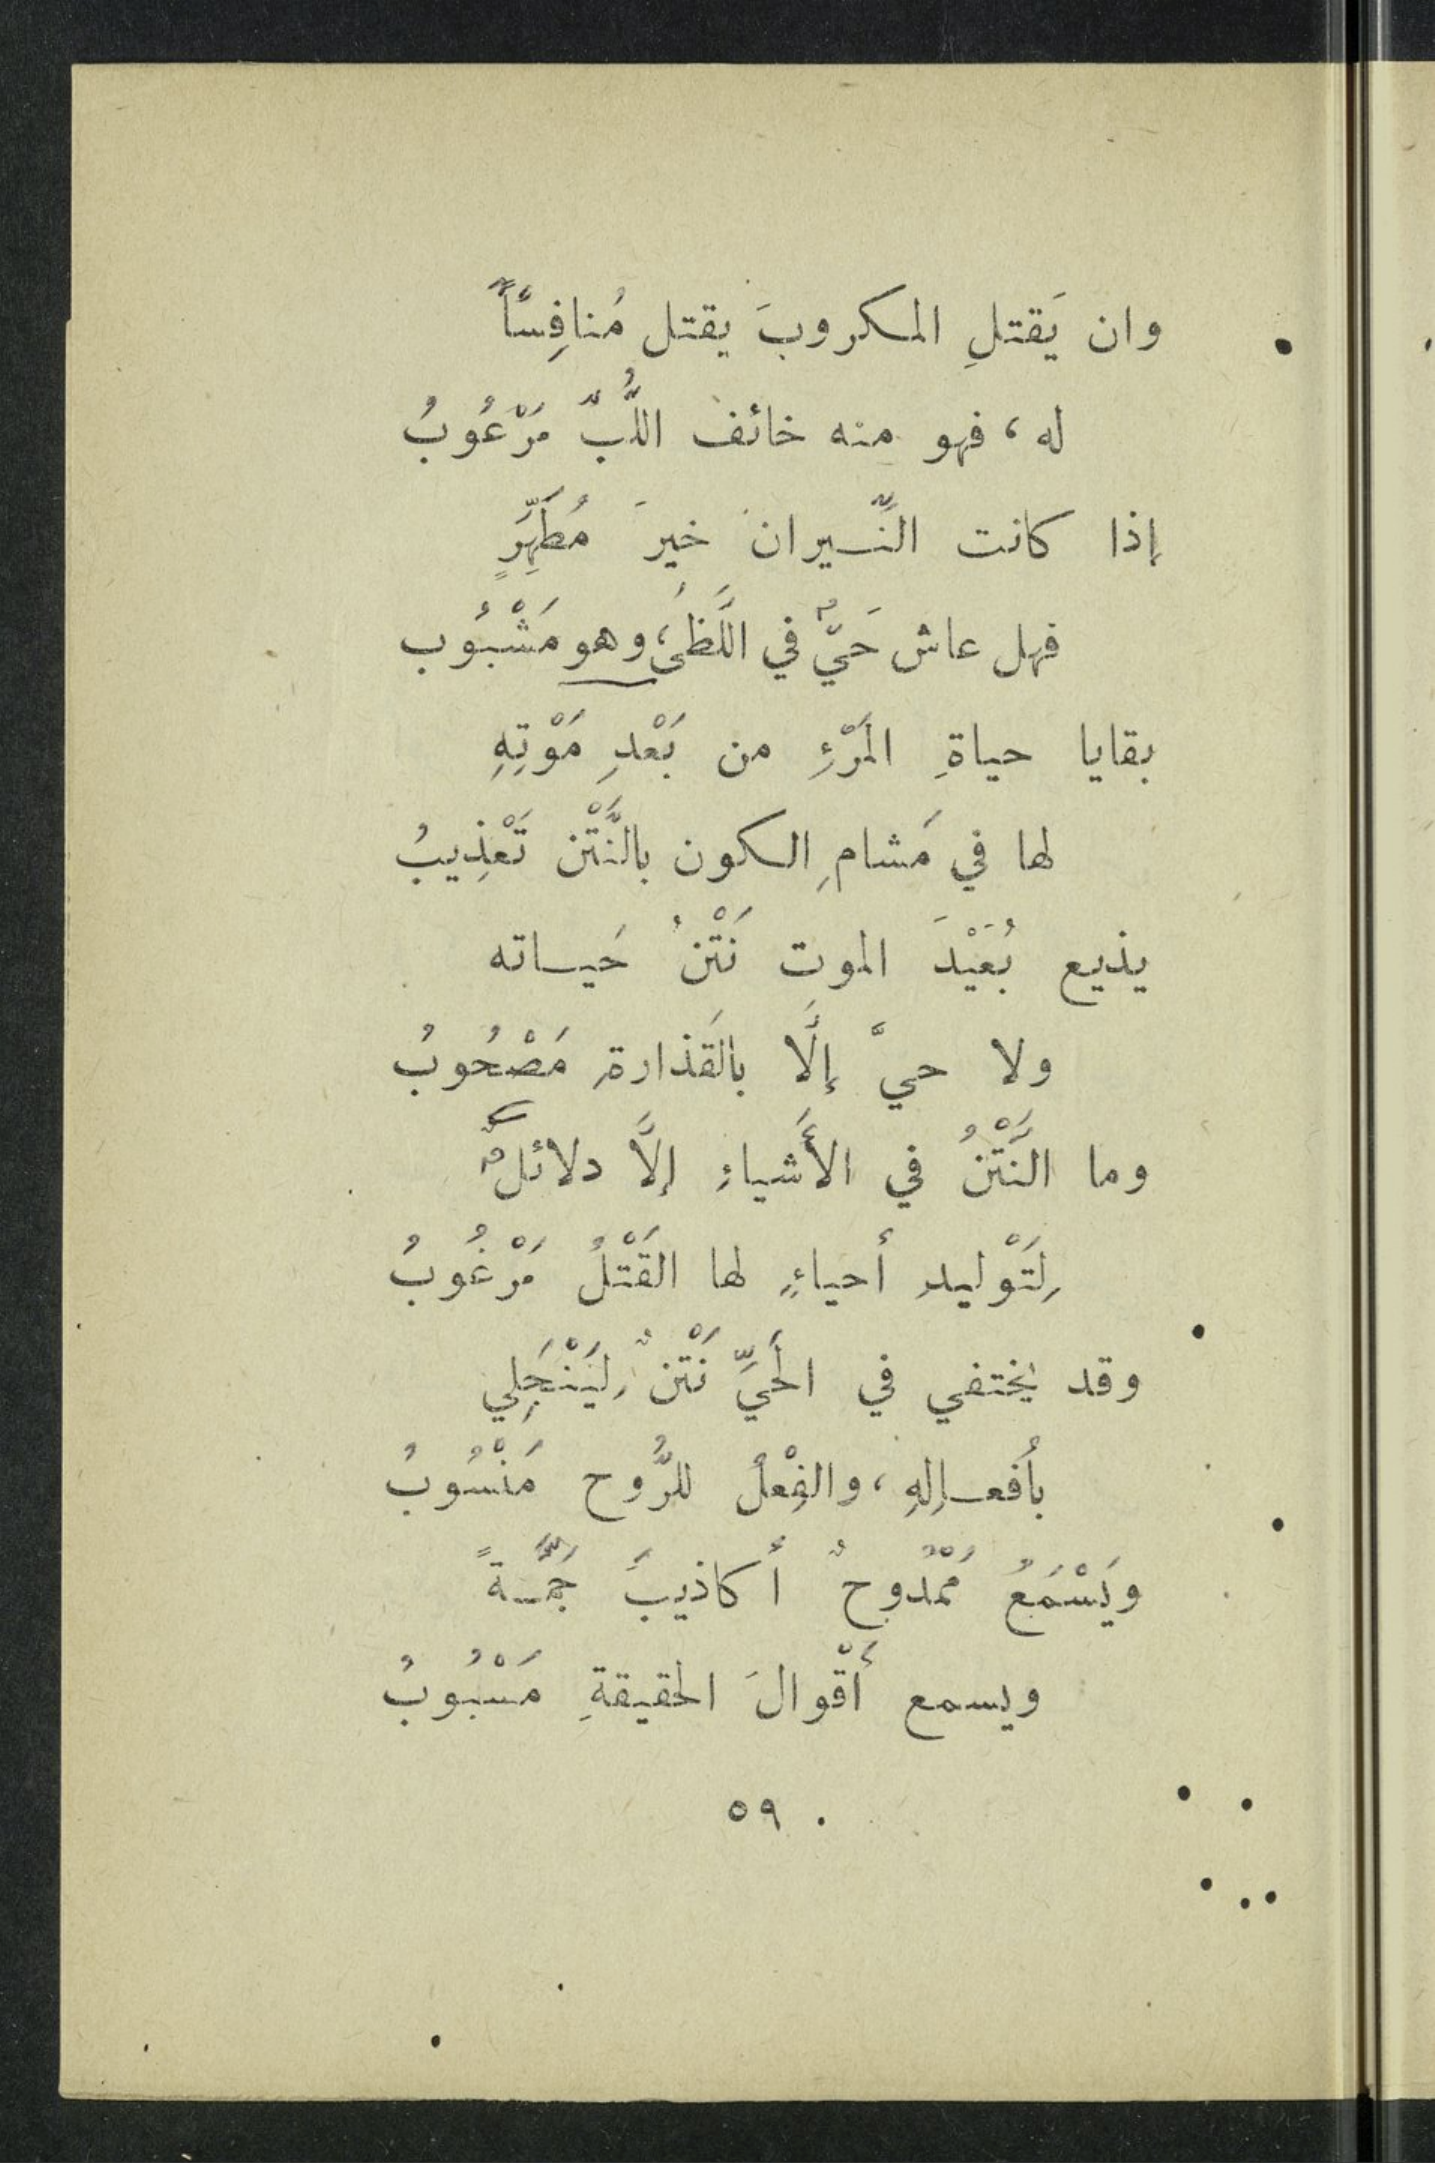 وان يَقتلِ المكروبَ يقتل مُنافِسًاً
له، فهو منه خائف اللُّبّ مَرْعُوبُ
إذا كانت النِّيران خيرَ مُطَهِّرٍ
فهل عاش حَيٌّ في اللَّظىُ، وهو مَشْبُوب
بقايا حياةِ المَرْءِ من بَعْدِ مَوْتِهِ
لها في مَشامِ الكون بالنَّتْن تَعْذِيبُ
يذيع بُعَيْدَ الموت نَتْنُ حَياته
ولا حيَّ إلَّا بالقَذارةِ مَصْحُوبُ
وما النَّتْنُ في الأَشياءِ إلَّا دلائلٌ
لِتَوْليدِ أحياءٍ لها القَتْلُ مَرْغُوبُ
وقد يختفي في الحَيِّ نَتْنٌ لِيَنْجَلِي
بأَفعالِهِ، والفِعْلُ للرُّوح مَنْسُوبُ
ويَسْمَعُ مَمْدُوحٌ أكاذيبَ جَمَّةً
ويسمع أَقْوالَ الحقيقةِ مَسْبُوبُ
٥٩